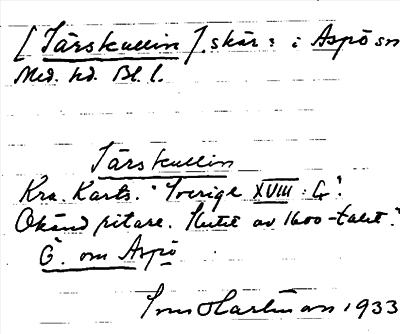 [Tärskullin]. skär: i Aspö sn
Med. hd. Bl. l.
Tärskullin
Kra. Kart. "Sverige XVIII: G".
Okänd ritare. Slutet av 1600-talet."
Ö. om Aspö
Hartman 1933